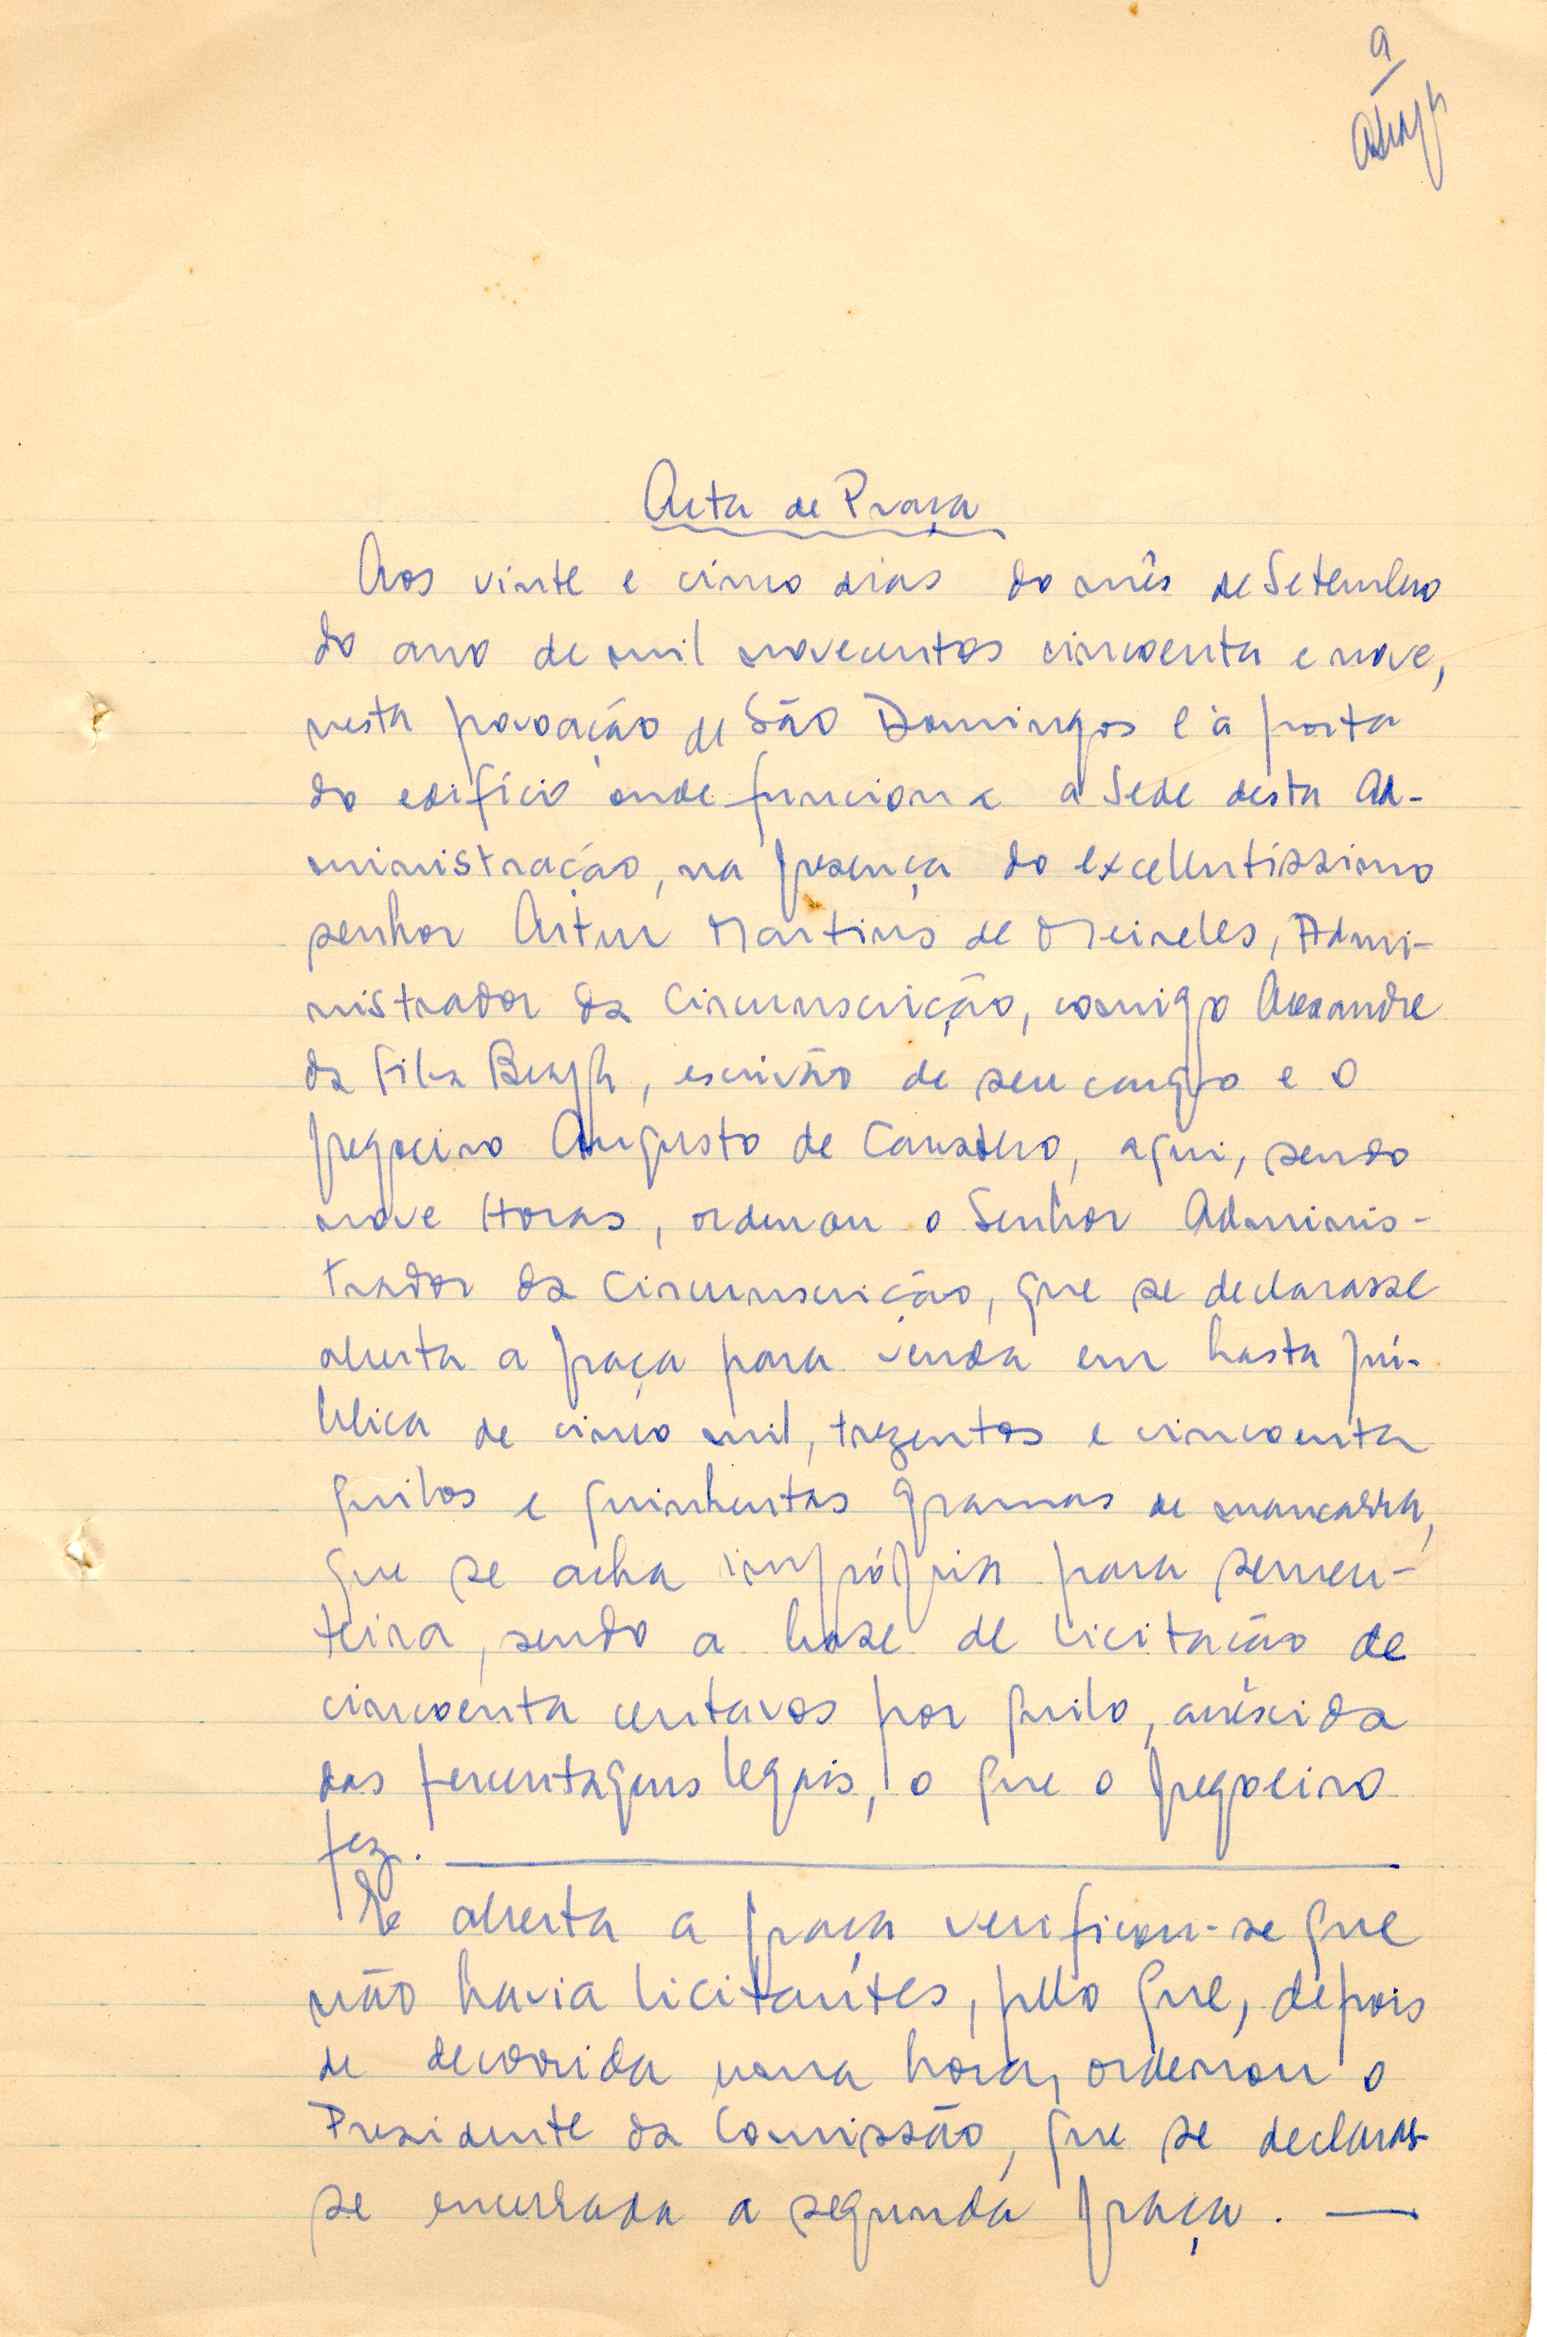 a
Acta de Praça
Aos vinte e cinco dias do mês de Setembro
do ano de mil novecentos cincoenta e nove,
nesta povoação de São Domingos e à porta
do edifício onde funciona a Sede desta Ad-
ministração, na presença do excelentíssimo
senhor Artur Martins de Meireles, Admi-
nistrador da Circunscrição, comigo Alexandre
da , escrivão de seu cargo e o
pregoeiro Augusto de , aqui, sendo
nove Horas, ordenou o Senhor Adminis-
trador da Circunscrição, que se declarasse
aberta a praça para venda em hasta pú-
blica de cinco mil, trezentos e cincoenta
quilos e quinhentas gramas de mancarra,
que se acha imprópria para semen-
teira, sendo a base de licitação de
cincoenta centavos por quilo, acréscida
das percentagens legais, o que o pregoeiro
fez.
E aberta a praça verificou-se que
não havia licitantes, pelo que, depois
de decorrida uma hora, ordenou o
Presidente da Comissão, que se declaras-
se encerrada a segunda praça.